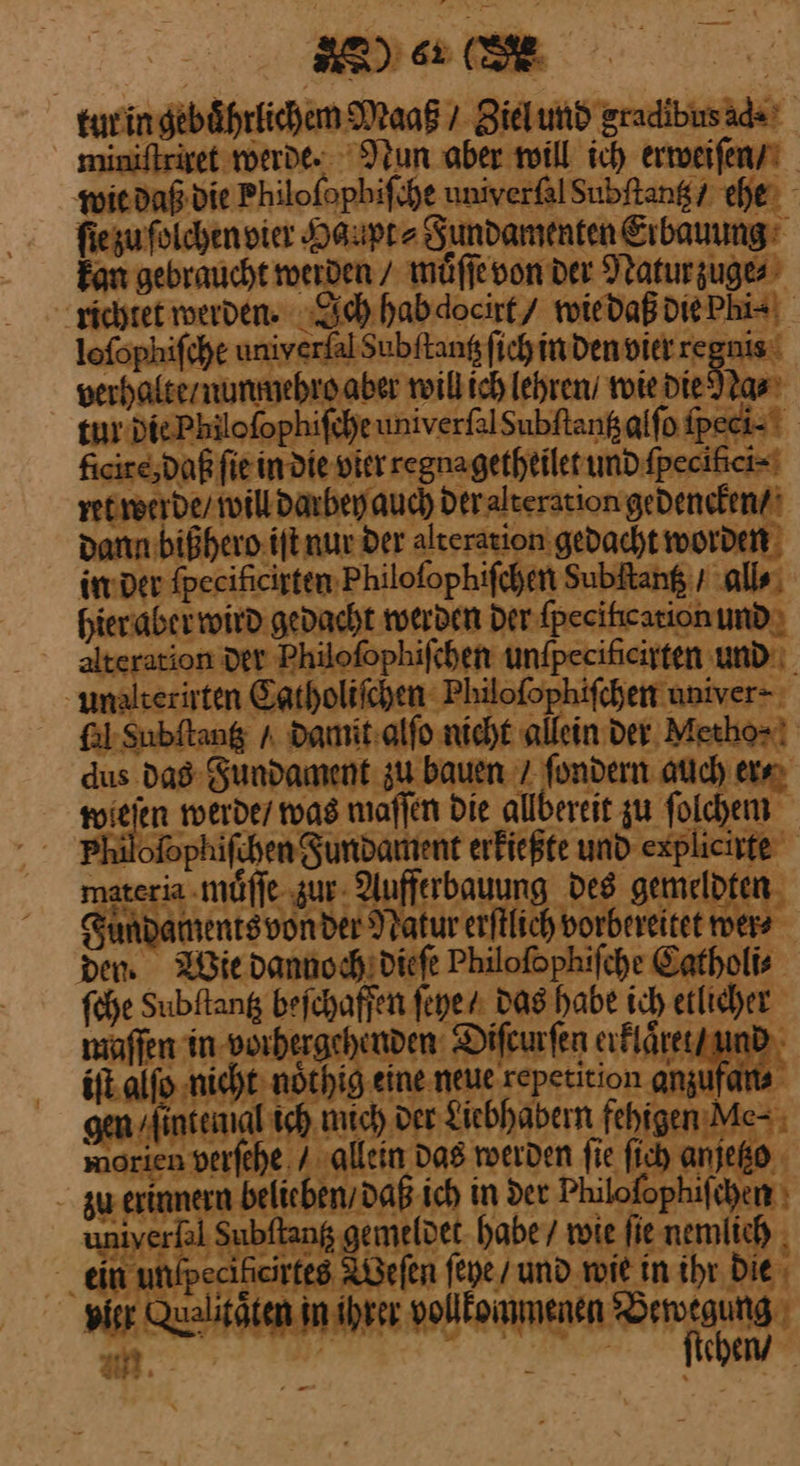 ) 62 (
tur in gebuͤhrlichem Maaß / Ziel und gradibus ad⸗
miniſtriret werde. Nun aber will ich erweiſen /
wie daß die Philoſophiſche univerſal Subſtantz / ehe
ſie zu ſolchen vier Haupt⸗Fundamenten Erbauung
kan gebraucht werden / muͤſſe von der Natur zuge⸗
richtet werden. Ich hab docirt / wie daß die Phi⸗
loſophiſche univerſal Subſtantz ſich in den vier regnis
verhalte / nunmehro aber will ich lehren / wie die Na⸗
tur die Philoſophiſche univerſal Subſtantz alſo ſpeci⸗
ficire, daß ſie in die vier regna getheilet und ſpecifici⸗
ret werde / will darbey auch der alteration gedencken /
dann bißhero iſt nur der alteration gedacht worden
in der ſpecificirten Philoſophiſchen Subſtantz / all⸗
hier aber wird gedacht werden der ſpecification und
alteration der Philoſophiſchen unſpecificirten und
unalterirten Catholiſchen Philoſophiſchen univer⸗
ſal Subſtantz / damit alſo nicht allein der Metho⸗
dus das Fundament zu bauen / ſondern auch er⸗
wieſen werde / was maſſen die allbereit zu ſolchem
Philoſophiſchen Fundament erkießte und explicirte
materia muͤſſe zur Aufferbauung des gemeldten
Fundaments von der Natur erſtlich vorbereitet wer⸗
den. Wie dannoch dieſe Philoſophiſche Catholi⸗
ſche Subſtantz beſchaffen ſeye / das habe ich etlicher
maſſen in vorhergehenden Diſcurſen erklaͤret / und
iſt alſo nicht noͤthig eine neue repetition anzufan⸗
gen / ſintemal ich mich der Liebhabern fehigen Me⸗
morien verſehe / allein das werden ſie ſich anjetzo
zu erinnern belieben / daß ich in der Philoſophiſchen
univerſal Subſtantz gemeldet habe / wie ſie nemlich
ein unſpecificirtes Weſen ſeye / und wie in ihr die
vier Qualitaͤten in ihrer vollkommenen Bewegung
ſtehen /